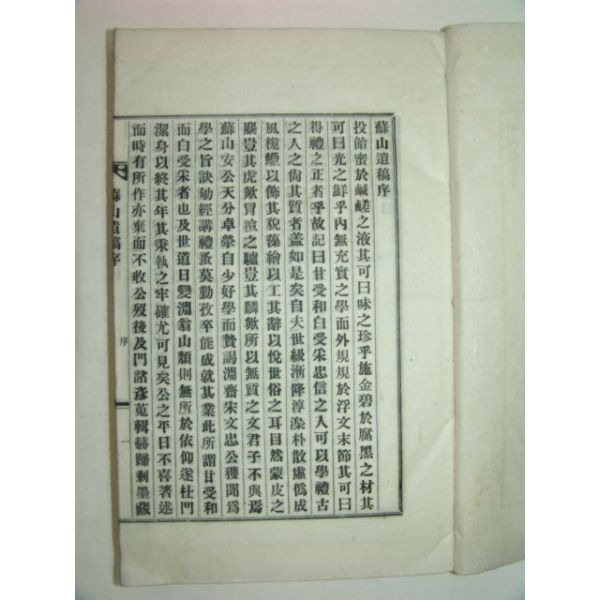 蘇山遺稿序
投飴蜜於鹹鹺之液其可曰味之珍乎施金碧於腐黑之材其
可曰光之鮮乎內無充實之學而外規規於浮文末節其可曰
得禮之正者乎故記曰甘受和白受采忠信之人可以學禮古
之人之尙其質者盖如是矣自夫世級漸降淳漓朴散虛僞成
風梔蠟以餙其貌藻繪以工其辭以悅世俗之耳目然蒙皮之
麌豈其虎歟冒楦之驢豈其麟歟所以無質之文君子不與焉
蘇山安公天分卓犖自少好學而贄謁淵齋宋文忠公獲聞爲
學之旨訣劬經講禮蚤莫勤孜卒能成就其業此所謂甘受和
而白受采者也及世道日變淵翁山頹則無所於依仰遂杜門
潔身以終其年其秉執之牢確尤可見矣公之平日不喜著述
而時有所作亦棄而不收公歿後及門諸彥蒐輯赫蹄剩墨藏
蘇山遺稿序
序
一